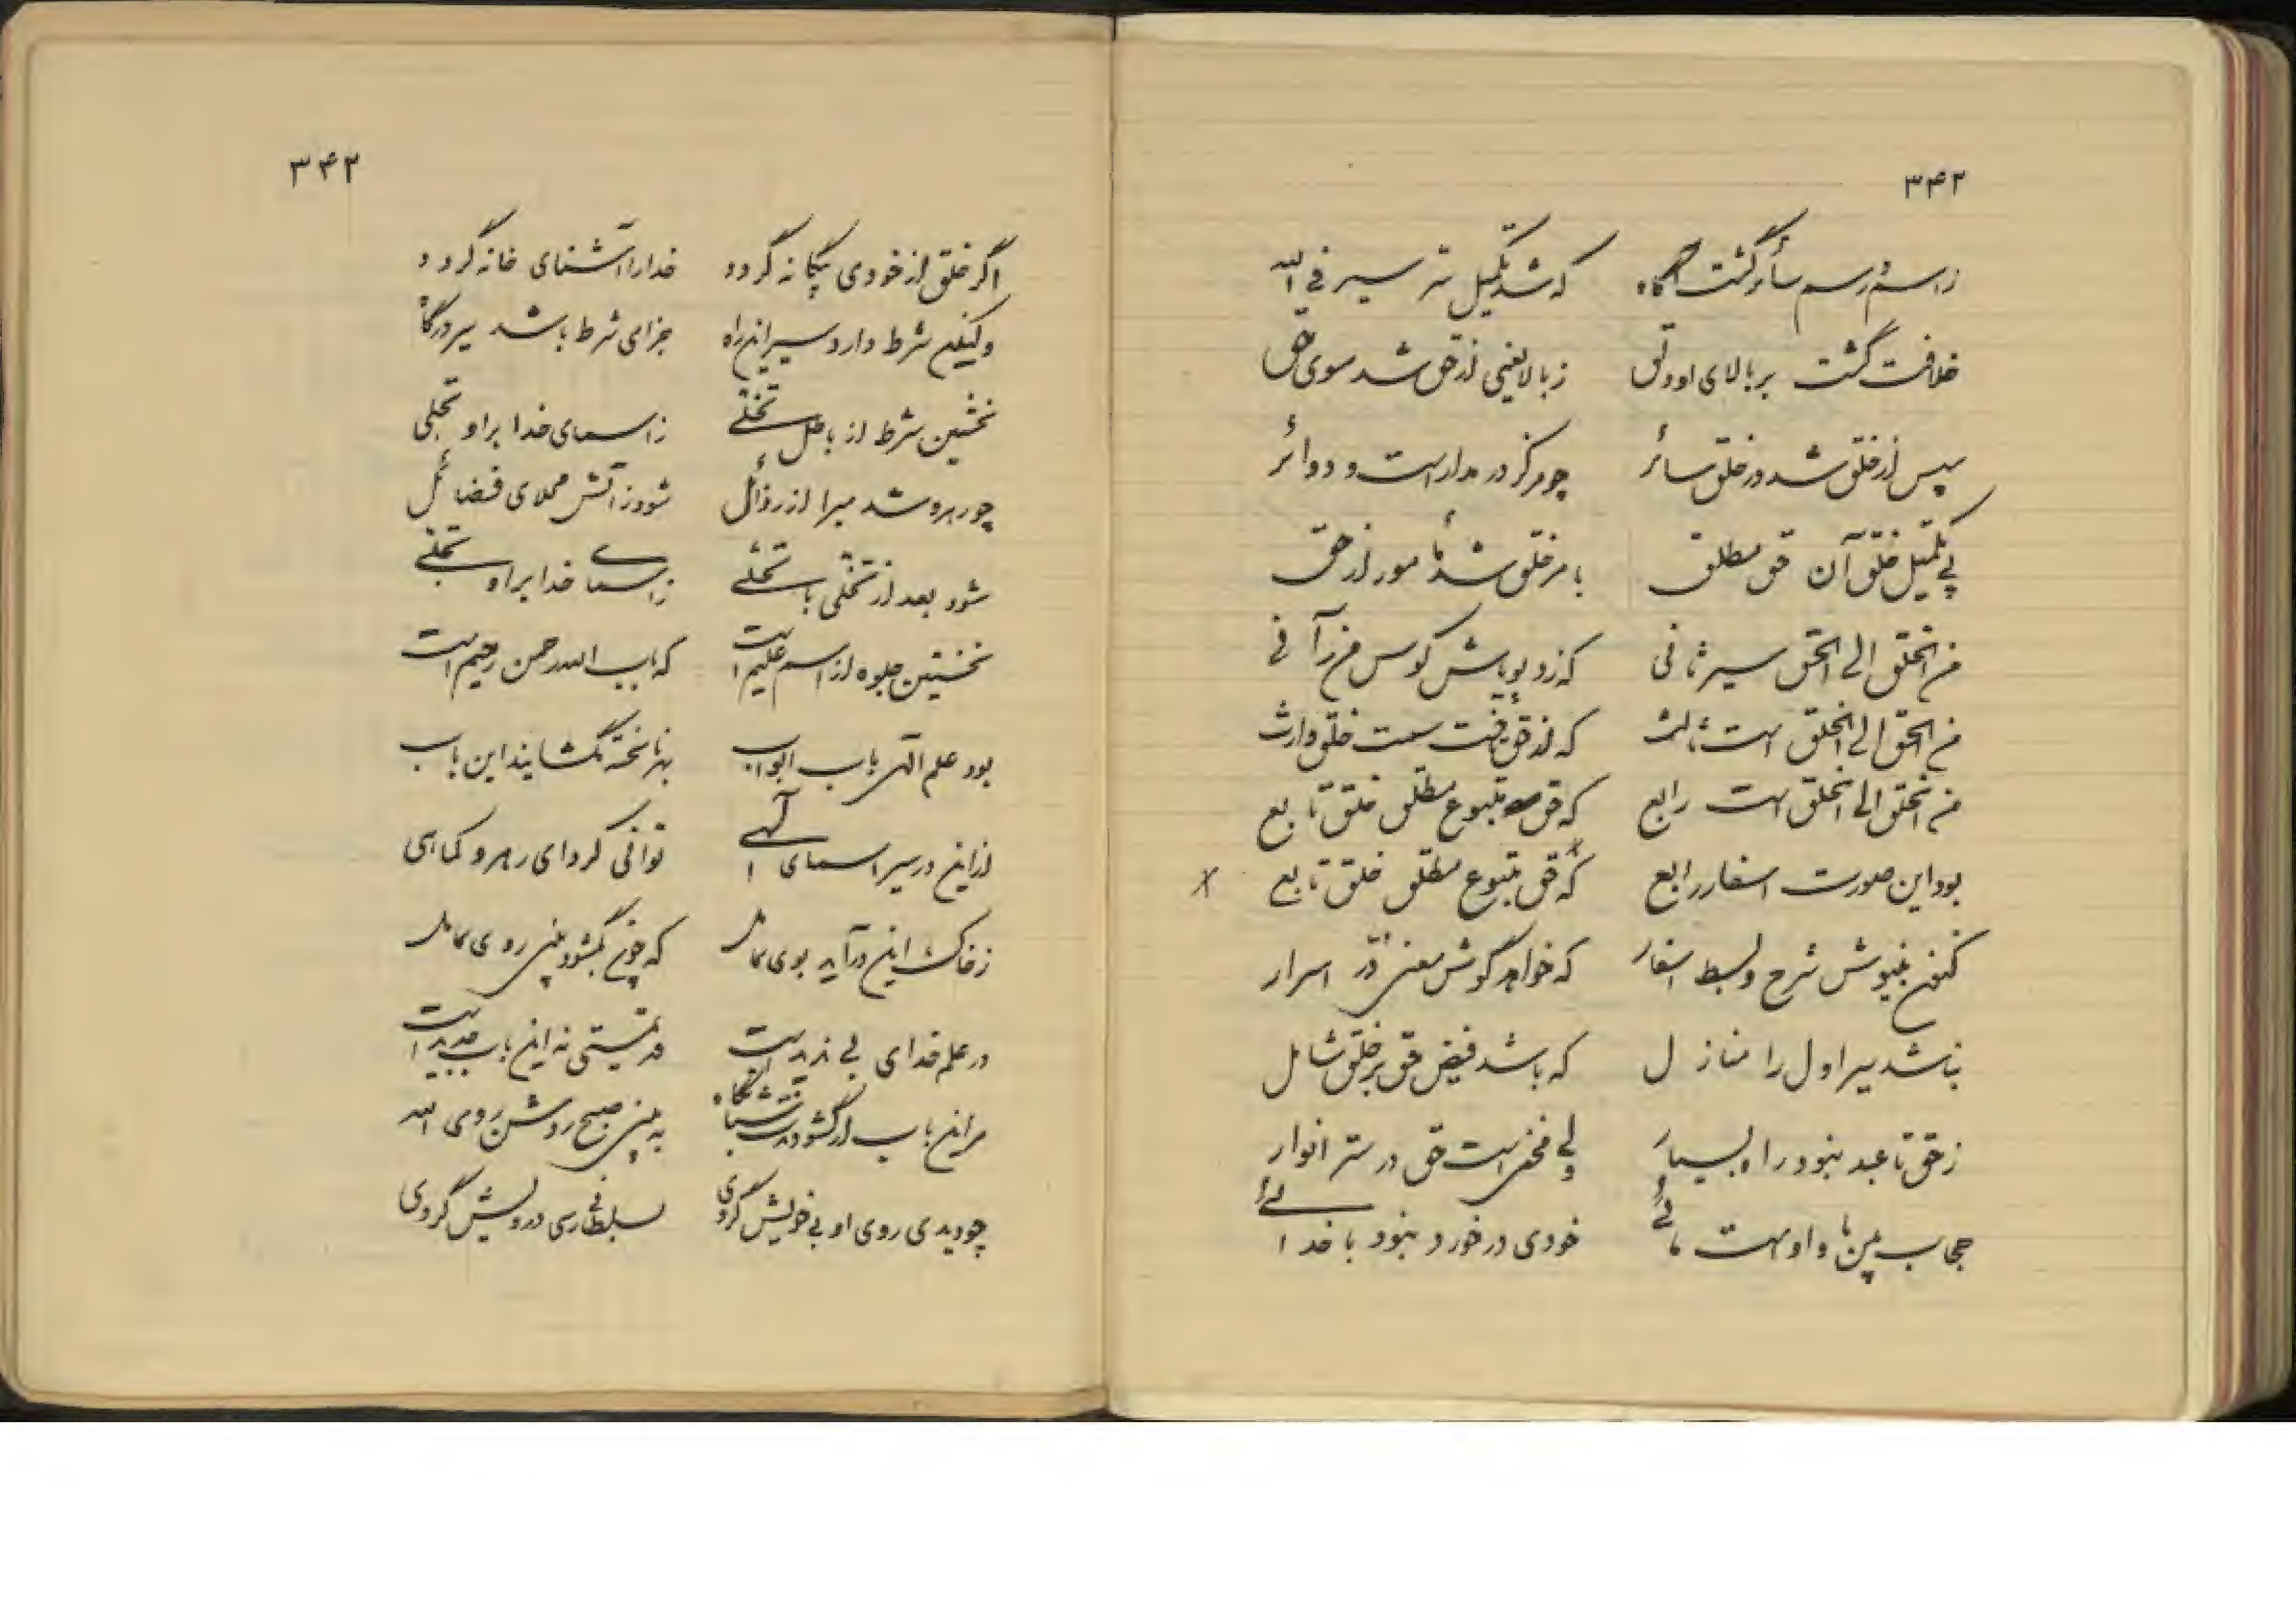 ۳۴۲
ز اسم و رسم سائر گشت آگاه که شد تکمیل سر سیر فی الله
خلافت گشت بر بالای او دلق ز بالا یعنی از حق شد سوی خلق
سپس از خلق شد در خلق سائر چو مرکز در مدار است و دوائر
پی تکمیل خلق آن حق مطلق بامر خلق شد مأمور از حق
من الخلق الی الحق سیر ثانی که زد بویاش کوس من رآنی
من الحق الی الخلق است ثالث که از حق یافت سمت خلق وارث
من الخلق الی الخلق است رابع که حق متبوع مطلق خلق تابع
بود این صورت اسفار رابع که حق متبوع مطلق خلق تابع x
کنون بنیوش شرح و بسط اسفار که خواهد گوش معنی در اسرار
نباشد سیر اول را منازل که باشد فیض حق بر خلق شامل
ز حق تا عبد نبود راه بسیار ولی مخفی است حق در ستر انوار
حجاب بین ما و اوست مائی خودی در خورد نبود با خدائی
۳۴۳
اگر خلق از خودی بیگانه گردد خدا را آشنای خانه گردد
ولیکن شرط دارد سیر این راه جزای شرط باشد سیر درگاه
نخستین شرط از باطل تخلی ز اسمای خدا بر او تجلی
چو رهرو شد مبرا از رذائل شود ز آتش محلای فضائل
شود بعد از تخلی با تحلی ز اسمای خدا بر او تجلی
نخستین جلوه از اسم علیم است که باب الله رحمن رحیم است
بود علم الهی باب ابواب بهر ناپخته نگشایند این باب
از این در سیر اسمای الهی توانی کرد ای رهرو کماهی
ز خاک این در آید بوی سائل که چون بگشود بینی روی سائل
در علم خدای بی ندید است قدمستی نه این باب جدید است
مر این باب ار گشودت به بینی صبح روشن روی الله
چو دیدی روی او بی خویش گردی بسلطانی رسی درویش گردی